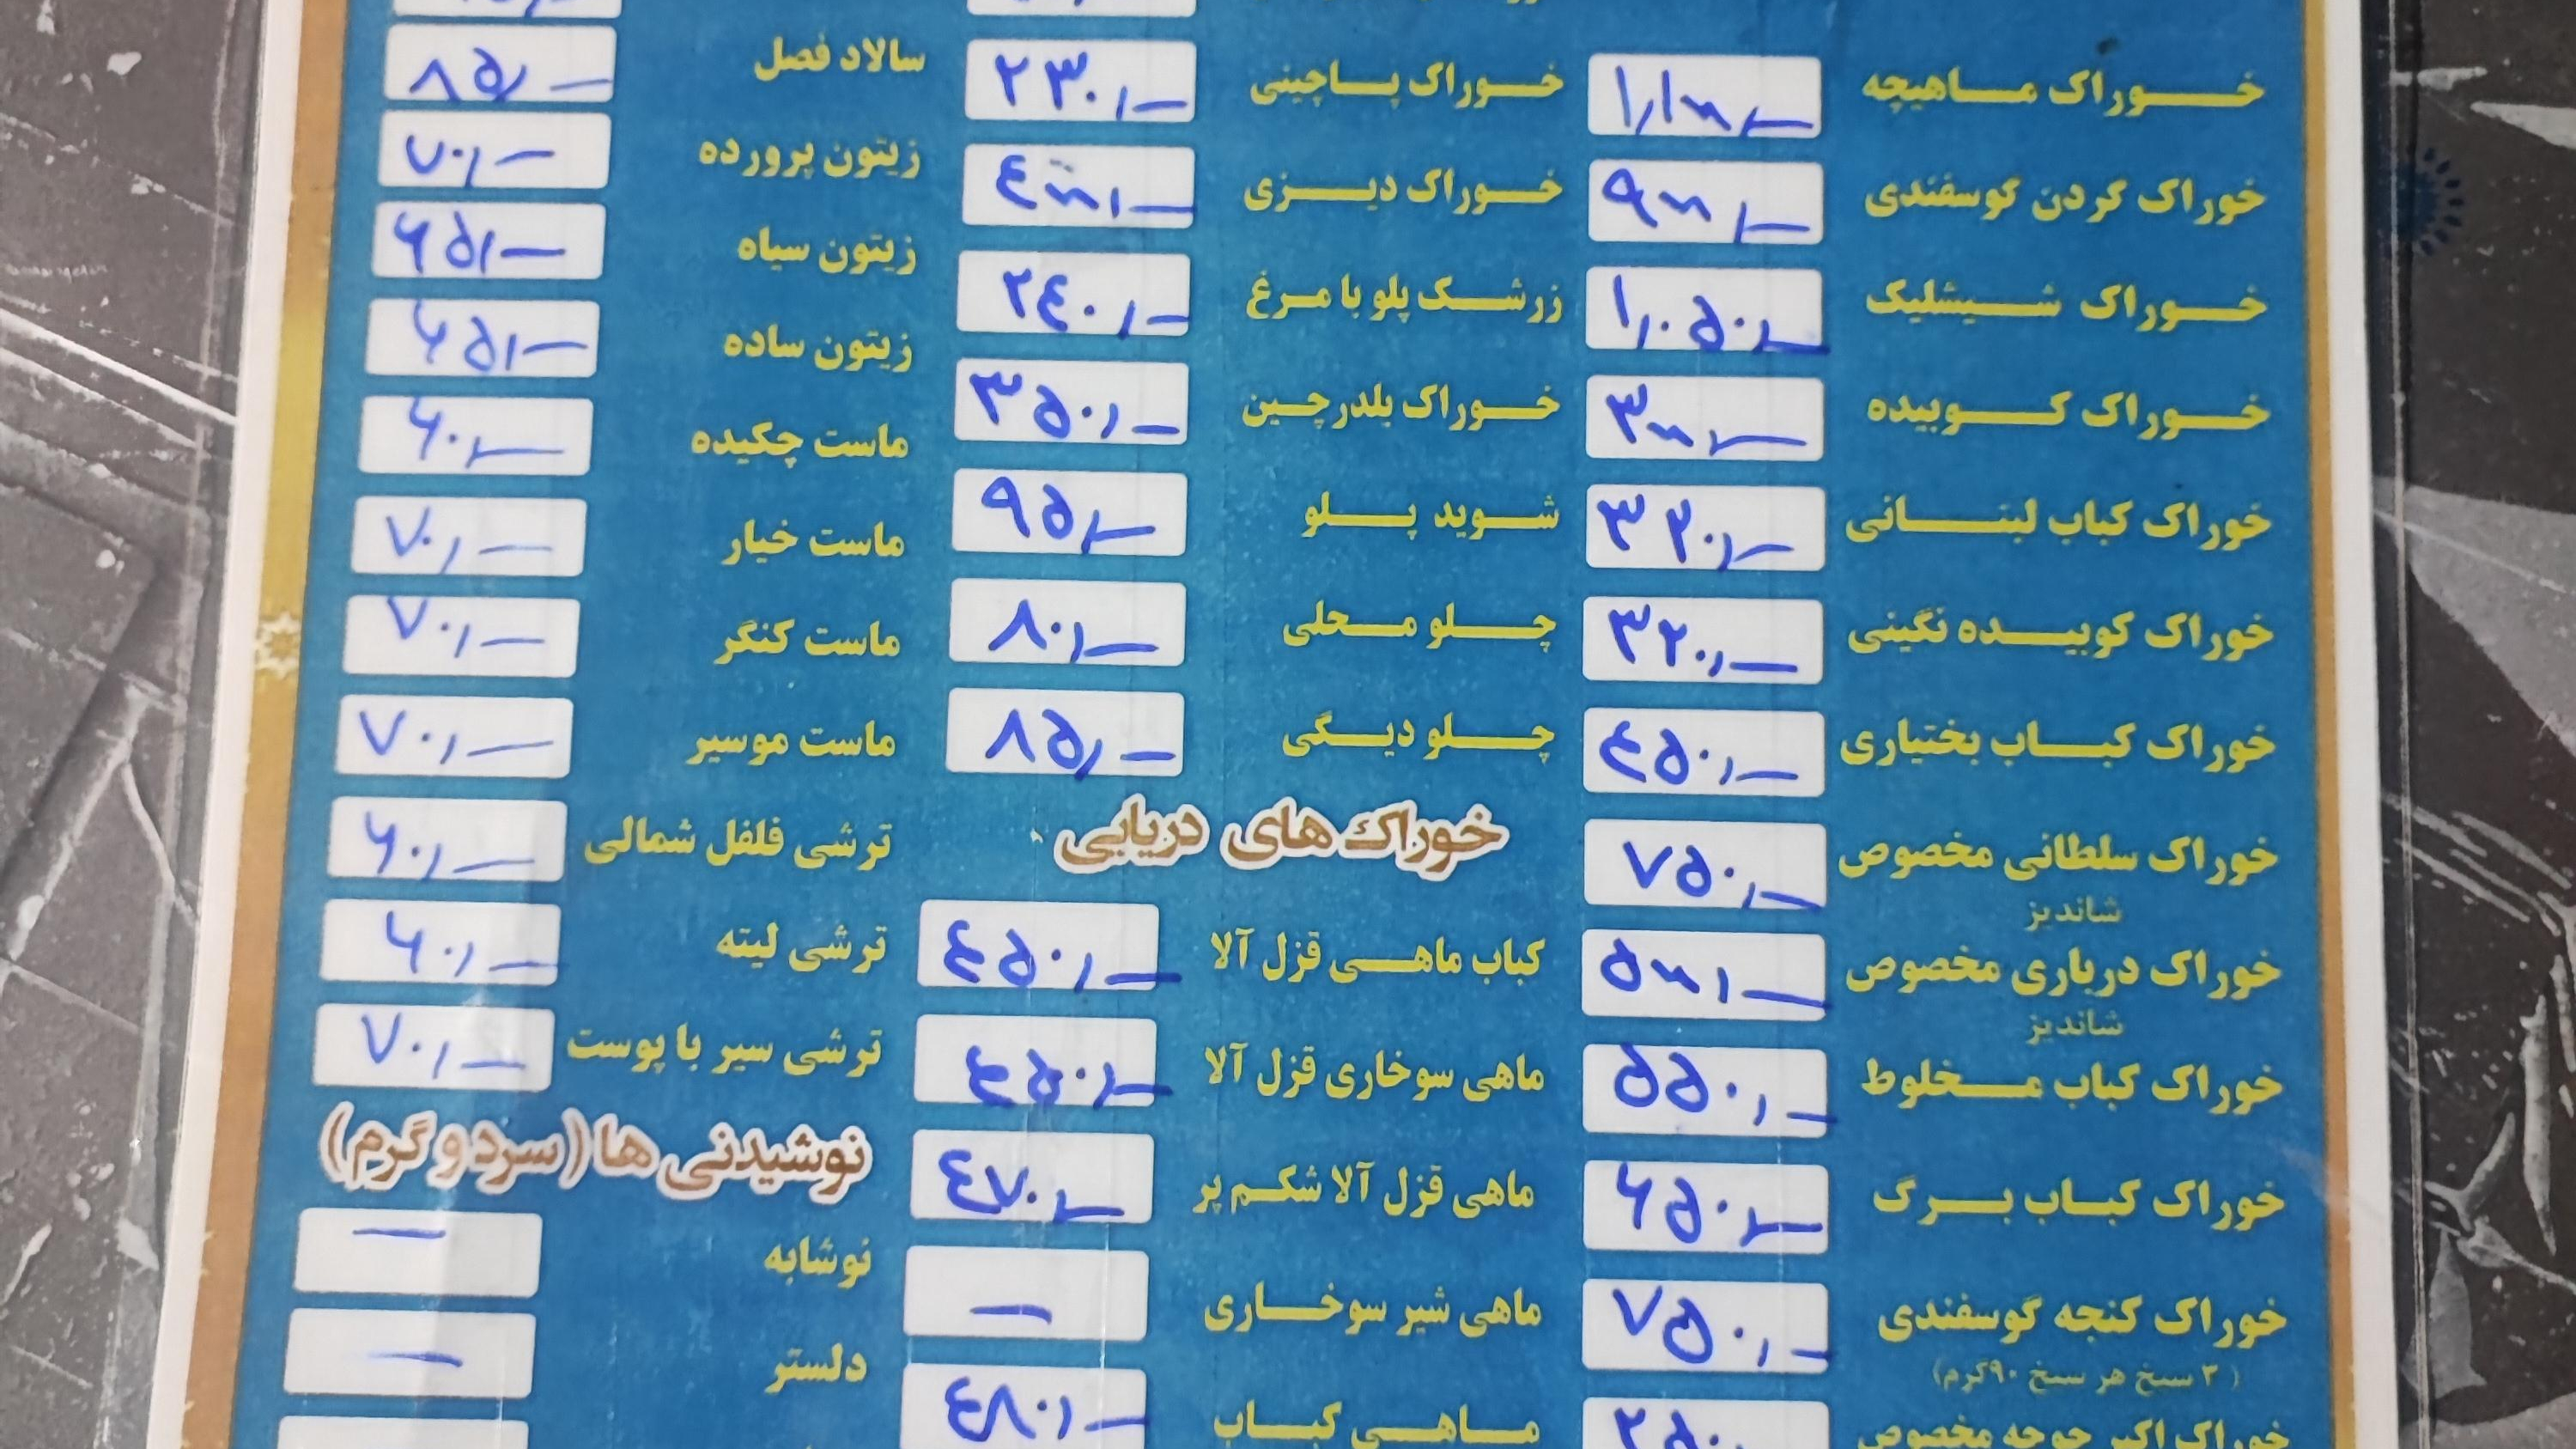 خوراک ماهیچه ۱,۱۰۰,-
خوراک گردن گوسفندی ۹۰۰,-
خوراک شیشلیک ۱,۰۵۰,-
خوراک کوبیده ۳۰۰,-
خوراک کباب لبنانی ۳۲۰,-
خوراک کوبیده نگینی ۳۲۰,-
خوراک کباب بختیاری ۴۵۰,-
خوراک سلطانی مخصوص ۷۵۰,-
شاندیز
خوراک درباری مخصوص ۵۰۰,-
شاندیز
خوراک کباب مخلوط ۵۵۰,-
خوراک کباب برگ ۶۵۰,-
خوراک کنجه گوسفندی ۷۵۰,-
( ۳ سیخ هر سیخ ۹۰گرم)
خوراک اکبر جوجه مخصوص
خوراک پاچینی ۲۳۰,-
خوراک دیزی ۴۰۰,-
زرشک پلو با مرغ ۲۴۰,-
خوراک بلدرچین ۳۵۰,-
شوید پلو ۹۵,-
چلو محلی ۸۰,-
چلو دیگی ۸۵,-
خوراک های دریایی
کباب ماهی قزل آلا ۴۵۰,-
ماهی سوخاری قزل آلا ۴۵۰,-
ماهی قزل آلا شکم پر ۴۷۰,-
ماهی شیر سوخاری -
ماهی کباب ۴۸۰,-
سالاد فصل ۸۵,-
زیتون پرورده ۷۰,-
زیتون سیاه ۶۵,-
زیتون ساده ۶۵,-
ماست چکیده ۶۰,-
ماست خیار ۷۰,-
ماست کنگر ۷۰,-
ماست موسیر ۷۰,-
ترشی فلفل شمالی ۶۰,-
ترشی لیته ۶۰,-
ترشی سیر با پوست ۷۰,-
نوشیدنی ها (سرد و گرم)
نوشابه -
دلستر -